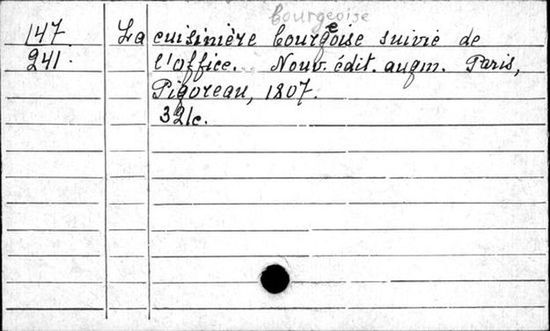 bourgeoise
147. La cuisinière bourgeoise suivie de
241. l'office. Nouv. édit. augm. Paris,
Pigoreau, 1807.
321c.